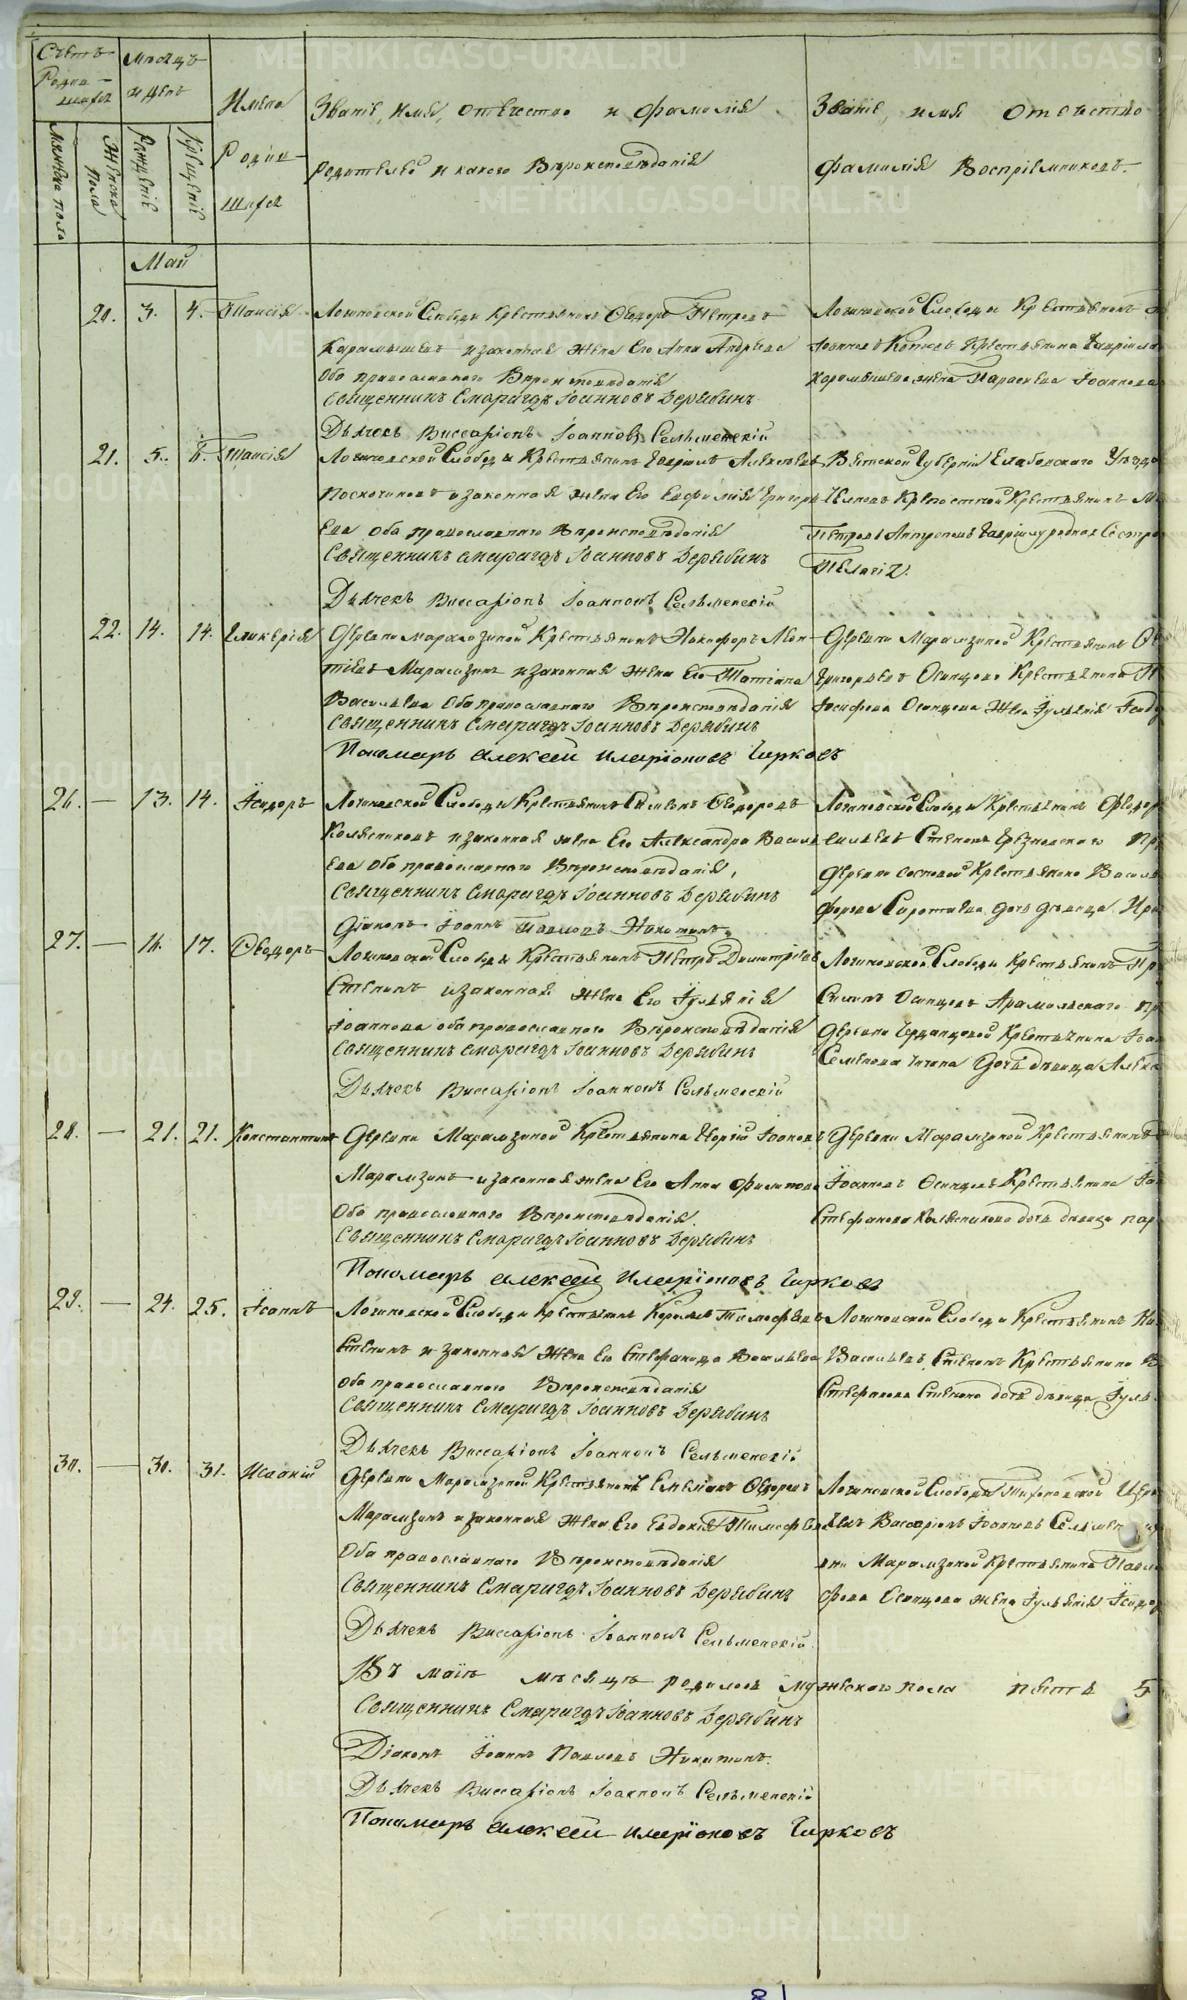 Счетъ Родившихся
Мѣсяцъ и день
Имена Родившихся
Званіе, имя, отчество и фамилія
родителей и какого Вѣроисповѣданія
Званіе, имя отчество
фамилія Воспріемниковъ.
Мужеска пола
Женска пола
Рожденіе
Крещеніе
Май
20. 3. 4. Таисія
Логиновской Слободы Крестьянинъ Ѳеодоръ Петровъ
Карамышевъ и законная жена Его Анна Андреева
Оба православнаго Вѣроисповѣданія
Священникъ Смарагдъ Іоанновъ Дерябинъ
Дьячекъ Виссаріонъ Іоанновъ Сельменскій
Логиновской Слободы Крестьянинъ
Іоанновъ Крестьянина Гавріила
Карамышева жена Параскева Іоаннова
21. 5. Таисія
Логиновской Слободы Крестьянинъ Гавріилъ Алексѣевъ
Поскочиновъ и законная жена Его Евфимія Григорь
ева Оба православнаго Вѣроисповѣданія
Священникъ Смарагдъ Іоанновъ Дерябинъ
Дьячекъ Виссаріонъ Іоанновъ Сельменскій
Вятской Губерніи Елабовскаго Уѣзда
Крепостной Крестьянинъ
Петровъ Гавріилу родная Сестра
Пелагія.
22. 14. 14. Гликерія
Деревни Марамзиной Крестьянинъ Никифоръ Леон
тіевъ Марамзинъ и законная жена Его Татіана
Васильева Оба православнаго Вѣроисповѣданія
Священникъ Смарагдъ Іоанновъ Дерябинъ
Пономарь Алексей Иларіоновъ Чирковъ
Деревни Марамзиной Крестьянинъ
Григорьевъ Осинцевъ Крестьянина
Іосифова Осинцева Жена Іуліанія
26. — 13. 14. Ісидоръ
Логиновской Слободы Крестьянинъ Симеонъ Ѳеодоровъ
Колясниковъ и законная жена Его Александра Василь
ева Оба православнаго Вѣроисповѣданія,
Священникъ Смарагдъ Іоанновъ Дерябинъ
Діаконъ Іоаннъ Павловъ Никитинъ
Логиновской Слободы Крестьянинъ Ѳеодоръ
сильевъ Степинъ
деревни сосновой Крестьянина Василь
дочь дѣвица
27. — 16. 17. Ѳеодоръ
Логиновской Слободы Крестьянинъ Петръ Димитріевъ
Степинъ и законная жена Его Іуліанія
Іоаннова оба православнаго Вѣроисповѣданія
Священникъ Смарагдъ Іоанновъ Дерябинъ
Дьячекъ Виссаріонъ Іоанновъ Сельменскій
Логиновской Слободы Крестьянинъ
Силинъ Осинцевъ Арамильскаго
деревни Крестьянина
Семенова дочь дѣвица
28. — 21. 21. Константинъ
Деревни Марамзиной Крестьянинъ Георгій Іоановъ
Марамзинъ и законная жена Его Анна Филипова
Оба православнаго Вѣроисповѣданія.
Священникъ Смарагдъ Іоанновъ Дерябинъ
Пономарь Алексей Иларіоновъ Чирковъ
Деревни Марамзиной Крестьянинъ
Іоанновъ Осинцевъ Крестьянина
Стефанова Колясникова дочь дѣвица
29. — 24. 25. Іоаннъ
Логиновской Слободы Крестьянинъ Корнилъ Тимофѣевъ
Степинъ и законная жена Его Стефанида Васильева
Оба православнаго Вѣроисповѣданія
Священникъ Смарагдъ Іоанновъ Дерябинъ
Дьячекъ Виссаріонъ Іоанновъ Сельменскій
Логиновской Слободы Крестьянинъ
Васильевъ Степинъ Крестьянина
Стефанова Степина дочь дѣвица
30. — 30. 31. Исаакій
Деревни Марамзиной Крестьянинъ Емельянъ Ѳедоровъ
Марамзинъ и законная Жена Его Евдокія Тимофѣева
Оба православнаго Вѣроисповѣданія
Священникъ Смарагдъ Іоанновъ Дерябинъ
Дьячекъ Виссаріонъ Іоанновъ Сельменскій
Логиновской Слободы Тихоновской
Виссаріонъ Іоанновъ
вни Марамзиной Крестьянина
Осинцова жена Іуліанія
Въ маіѣ мѣсяцѣ родилось мужескаго пола пять 5
Священникъ Смарагдъ Іоанновъ Дерябинъ
Діаконъ Іоаннъ Павловъ Никитинъ.
Дьячекъ Виссаріонъ Іоанновъ Сельменскій
Пономарь Алексей Иларіоновъ Чирковъ
METRIKI.GASO-URAL.RU